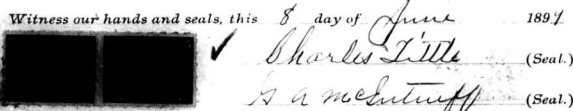 Witness our hands and seals, this 8 day of June 1897
Charles Tittle (Seal.)
A McInturff (Seal.)